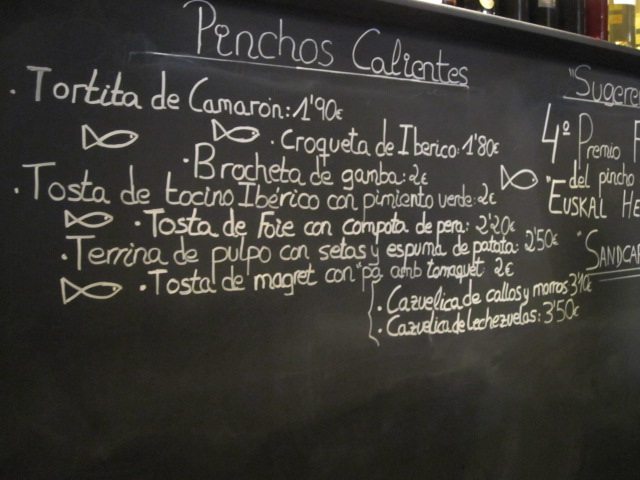 Pinchos Calientes
· Tortita de Camarón: 1'90€
· Croqueta de Iberico: 1'80€
· Brocheta de gamba: 2€
· Tosta de tocino Ibérico con pimiento verde: 2€
· Tosta de Foie con compota de pera: 2'20€
· Terrina de pulpo con setas y espuma de patata: 2'50€
· Tosta de magret con "pa amb tomaquet: 2€
· Cazuelica de callos y morros 3'10€
· Cazuelica de lechezuelas: 3'50€
"Sugeren
4º Premio
del pincho
"EUSKAL HE
"SANDCAR